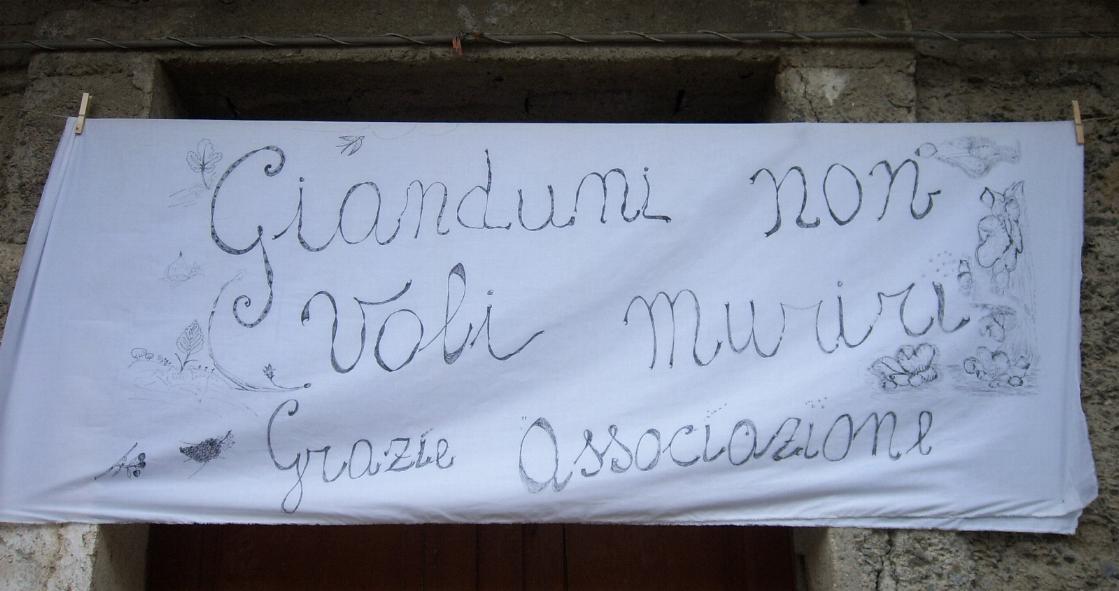 Gianduni non
Voli muriri
Grazie Associazione